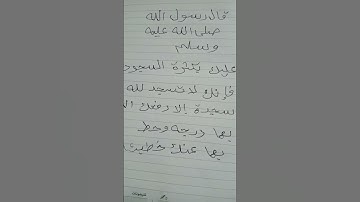 قال رسول الله
صلى الله عليه
وسلم
عليك بكثرة السجود
فإنك لا تسجد لله
سجدة إلا رفعك الله
بها درجة وحط
بها عنك خطيئة